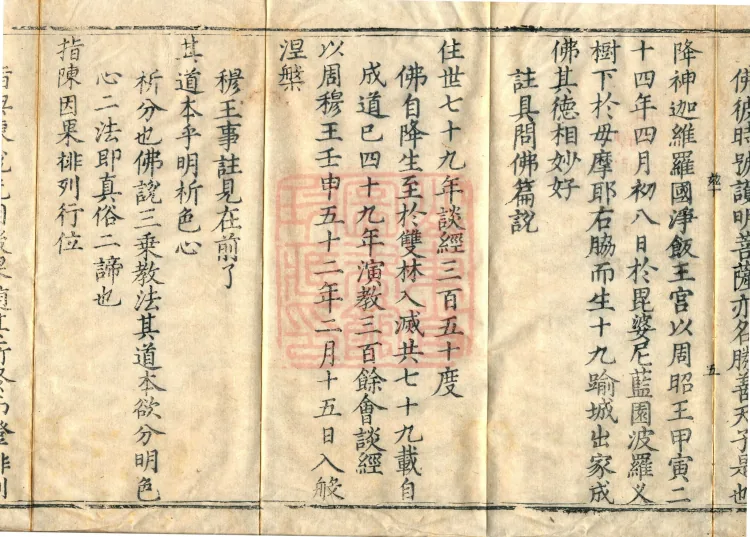 佛彼時號護明菩薩亦名勝善天子是也
五
降神迦維羅國淨飯王宮以周昭王甲寅二
十四年四月初八日於毘婆尼藍園波羅义
樹下於毋摩耶右脇而生十九踰城出家成
佛其德相妙好
註具問佛篇說
住世七十九年談經三百五十度
佛自降生至於雙林入滅共七十九載自
成道已四十九年演教三百餘會談經
以周穆王壬申五十二年二月十五日入般
涅槃
穆王事註見在前了
其道本乎明析色心
析分也佛說三乘教法其道本欲分明色
心二法即真俗二諦也
指陳因果排列行位